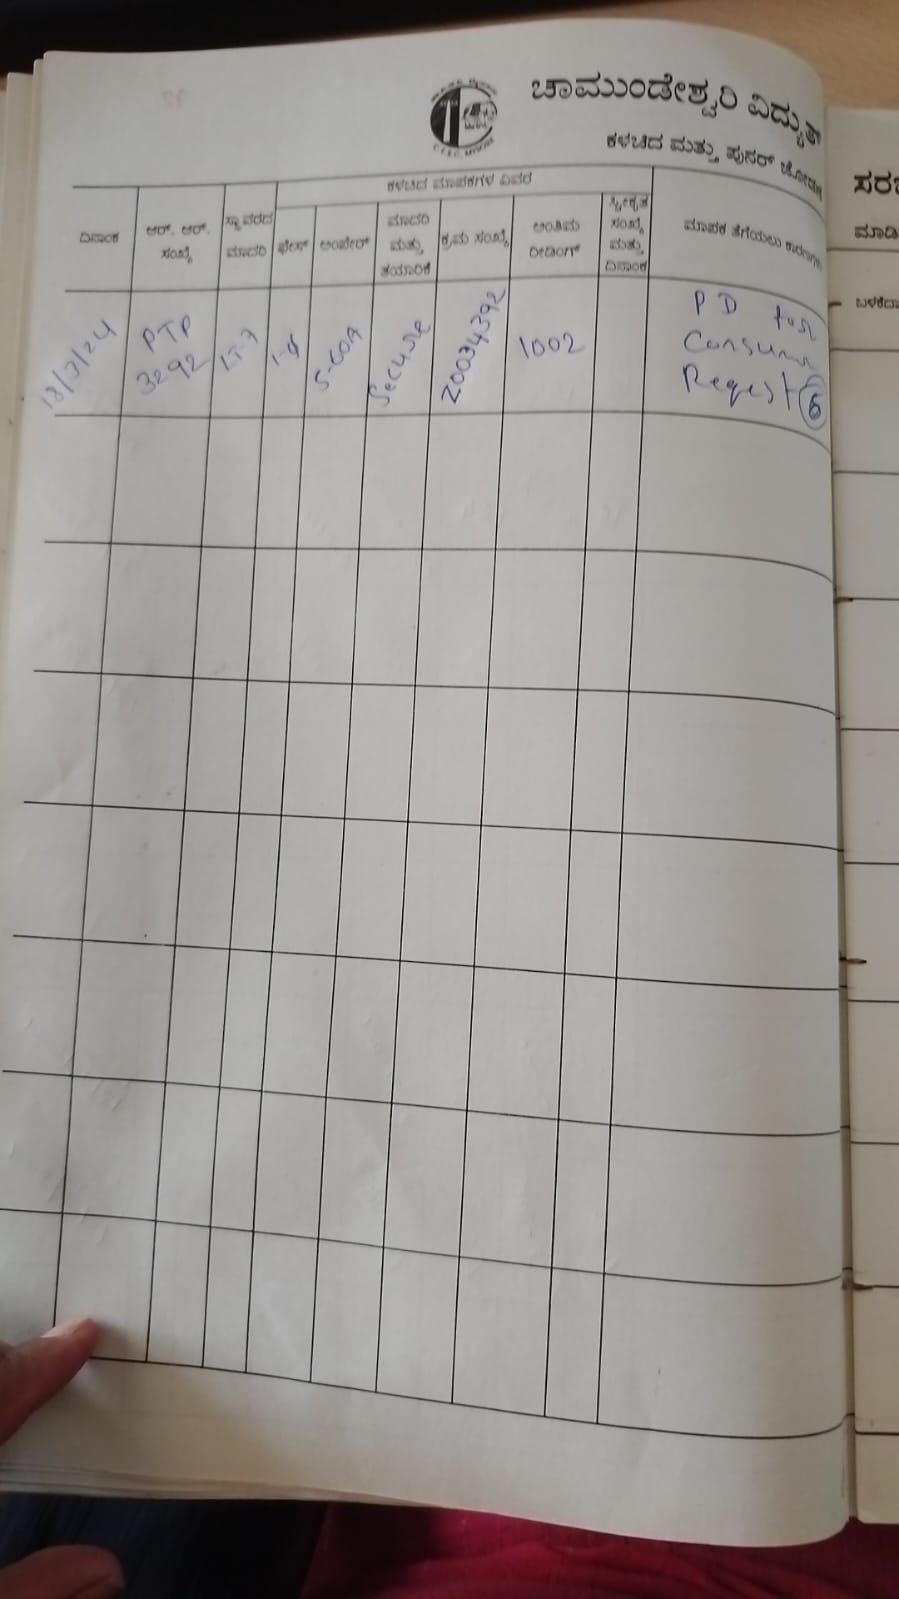 ಚಾಮುಂಡೇಶ್ವರಿ ವಿದ್ಯುತ್
ಕಳಚಿದ ಮತ್ತು ಪುನರ್ ಜೋಡಣೆ
ಕಳಚಿದ ಮಾಪಕಗಳ ವಿವರ
ದಿನಾಂಕ
ಆರ್. ಆರ್.
ಸಂಖ್ಯೆ
ಸ್ಥಾವರದ
ಮಾದರಿ
ಫೇಸ್
ಆಂಪೇರ್
ಮಾದರಿ
ಮತ್ತು
ತಯಾರಿಕೆ
ಕ್ರಮ ಸಂಖ್ಯೆ
ಅಂತಿಮ
ರೀಡಿಂಗ್
ಸ್ವೀಕೃತ
ಸಂಖ್ಯೆ
ಮತ್ತು
ದಿನಾಂಕ
ಮಾಪಕ ತೆಗೆಯಲು ಕಾರಣಗಳು
18/7/24
PTP
3292
LT-7
1-φ
5-60A
Secure
20034392
1002
PD for
Consumer
Reqest 6
ಮಾಡಿ